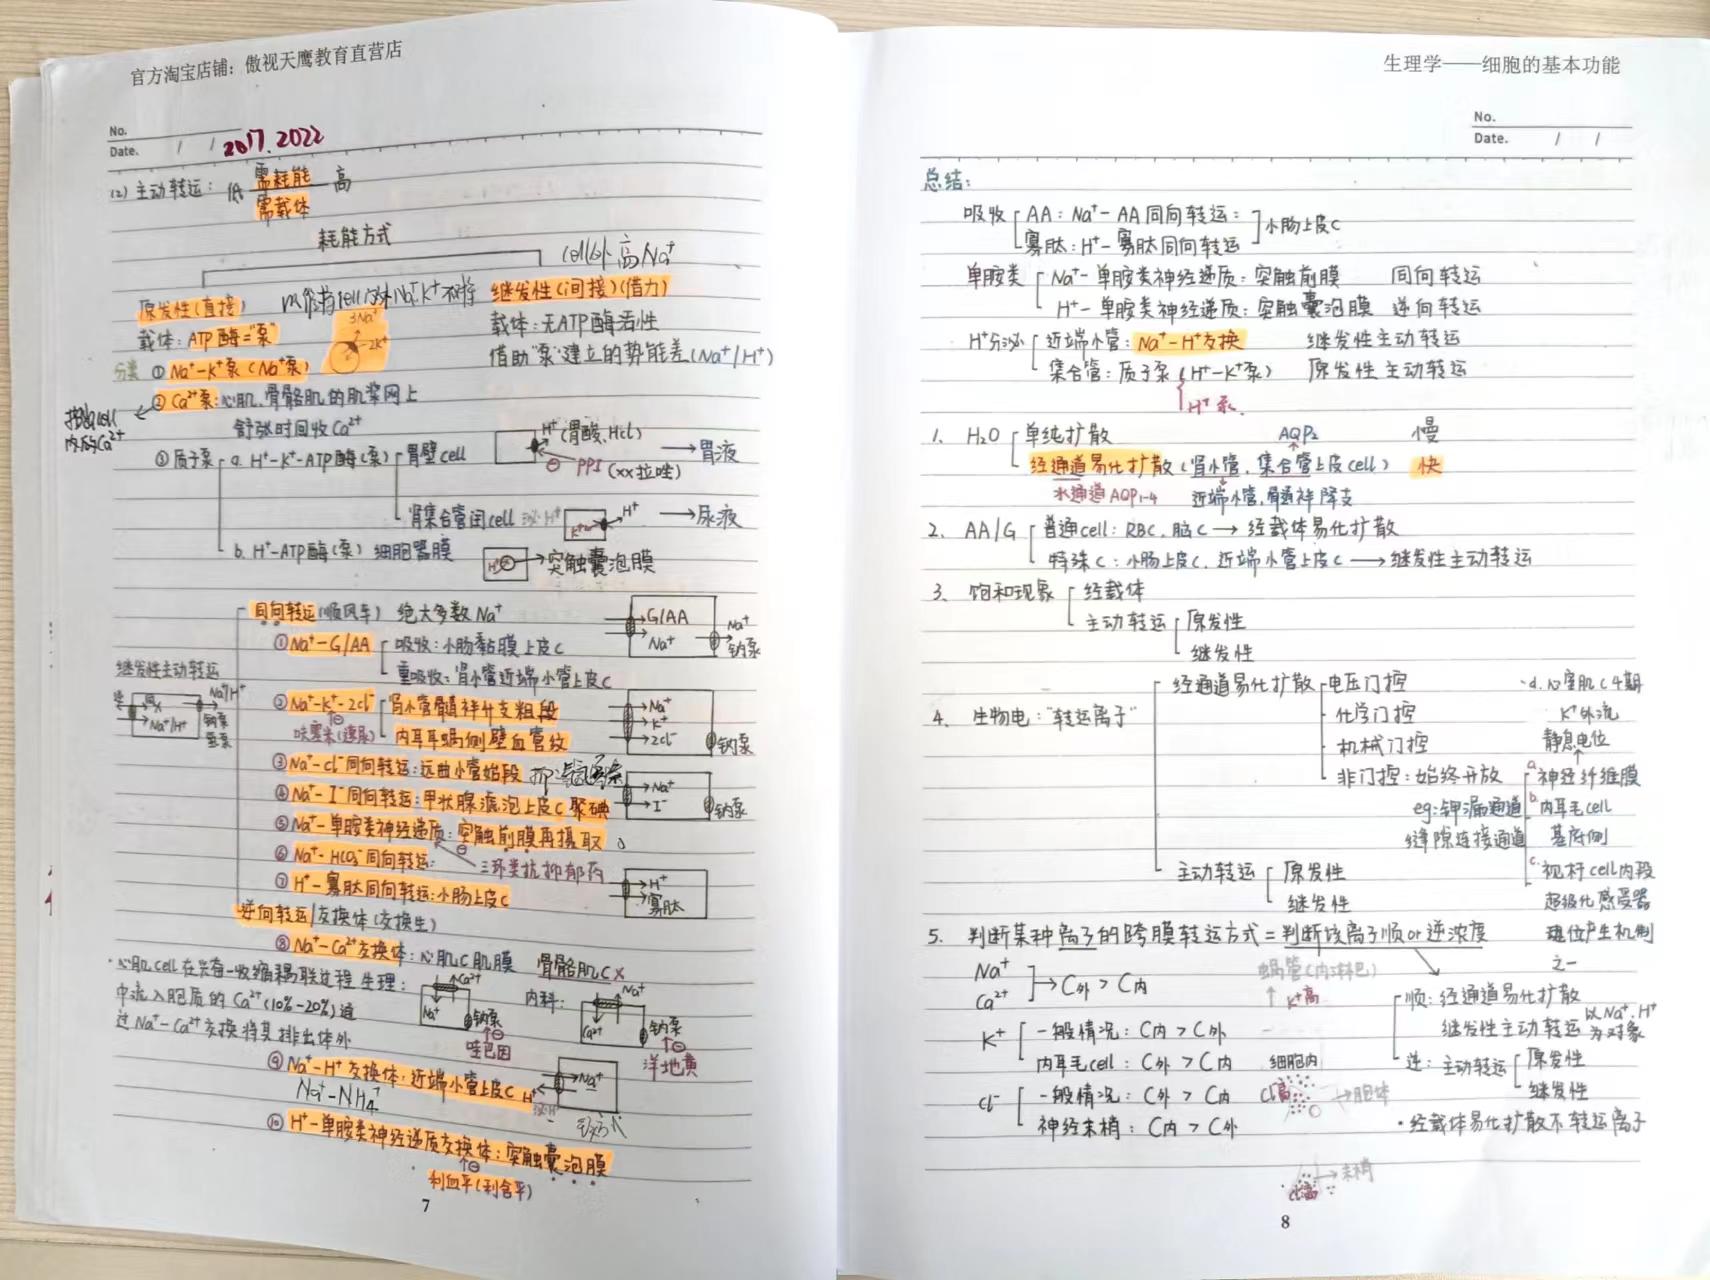 官方淘宝店铺：傲视天鹰教育直营店
No.
Date. / / 2017.2022
(2) 主动转运：低 需耗能 高
需载体
耗能方式
cell外高Na⁺
原发性(直接) 维持cell内外Na⁺、K⁺不均衡 继发性(间接)(借力)
载体：ATP酶="泵" 3Na⁺ 2K⁺ 载体：无ATP酶活性
借助"泵"建立的势能差(Na⁺/H⁺)
分类 ① Na⁺-K⁺泵(Na⁺泵)
② Ca²⁺泵：心肌、骨骼肌的肌浆网上
cell
内的Ca²⁺
舒张时回收Ca²⁺
③ 质子泵 a. H⁺-K⁺-ATP酶(泵) 胃壁cell H⁺(胃酸、HCl) → 胃液
⊖ PPI (xx拉唑)
肾集合管闰cell 泌H⁺ K⁺ H⁺ → 尿液
b. H⁺-ATP酶(泵) 细胞器膜 H⁺ → 突触囊泡膜
同向转运(顺风车) 绝大多数Na⁺ G/AA Na⁺ Na⁺ 钠泵
① Na⁺-G/AA 吸收：小肠黏膜上皮C
重吸收：肾小管近端小管上皮C
继发性主动转运
X Na⁺/H⁺ Na⁺/H⁺ 钠泵
② Na⁺-K⁺-2Cl⁻ 肾小管髓袢升支粗段 Na⁺ K⁺ 2Cl⁻ 钠泵
⊖ 呋塞米(速尿) 内耳耳蜗侧壁血管纹
③ Na⁺-Cl⁻同向转运：远曲小管始段
④ Na⁺-I⁻同向转运：甲状腺滤泡上皮C 聚碘 Na⁺ I⁻ 钠泵
⑤ Na⁺-单胺类神经递质：突触前膜再摄取
⑥ Na⁺-HCO₃⁻同向转运： ⊖ 三环类抗抑郁药
⑦ H⁺-寡肽同向转运：小肠上皮C H⁺ 寡肽
逆向转运/交换体(交换生)
⑧ Na⁺-Ca²⁺交换体：心肌C肌膜 骨骼肌C×
·心肌cell在兴奋-收缩耦联过程 生理： Ca²⁺ Na⁺ 钠泵 内科： Na⁺ Ca²⁺ 钠泵
中流入胞质的Ca²⁺(10%-20%)通
过Na⁺-Ca²⁺交换将其排出体外 ⊖ 哇巴因 ⊖ 洋地黄
⑨ Na⁺-H⁺交换体：近端小管上皮C H⁺ Na⁺
Na⁺-NH₄⁺ 泌H⁺
⑩ H⁺-单胺类神经递质交换体：突触囊泡膜
⊖ 利血平(利舍平)
7
生理学——细胞的基本功能
No.
Date. / /
总结：
吸收 AA：Na⁺-AA同向转运： 小肠上皮C
寡肽：H⁺-寡肽同向转运
单胺类 Na⁺-单胺类神经递质：突触前膜 同向转运
H⁺-单胺类神经递质：突触囊泡膜 逆向转运
H⁺分泌 近端小管：Na⁺-H⁺交换 继发性主动转运
集合管：质子泵(H⁺-K⁺泵) 原发性主动转运
H⁺泵
1. H₂O 单纯扩散 AQP₂ 慢
经通道易化扩散(肾小管、集合管上皮cell) 快
水通道AQP1-4 近端小管，髓袢降支
2. AA/G 普通cell：RBC、脑C → 经载体易化扩散
特殊C：小肠上皮C、近端小管上皮C → 继发性主动转运
3. 饱和现象 经载体
主动转运 原发性
继发性
4. 生物电："转运离子" 经通道易化扩散 电压门控 d.心室肌C 4期
化学门控 K⁺外流
机械门控 静息电位
非门控：始终开放 a.神经纤维膜
eg：钾漏通道 b.内耳毛cell
缝隙连接通道 基底侧
主动转运 原发性 c.视杆cell内段
继发性 超级化感受器
5. 判断某种离子的跨膜转运方式=判断该离子顺or逆浓度 电位产生机制
之一
Na⁺ Ca²⁺ → C外>C内 蜗管(内淋巴) K⁺高 顺：经通道易化扩散
K⁺ 一般情况：C内>C外 继发性主动转运 以Na⁺、H⁺为对象
内耳毛cell：C外>C内 细胞内 逆：主动转运 原发性
Cl⁻ 一般情况：C外>C内 Cl⁻高 → 胞体 继发性
神经末梢：C内>C外 ·经载体易化扩散不转运离子
→ 末梢
Cl⁻高
8